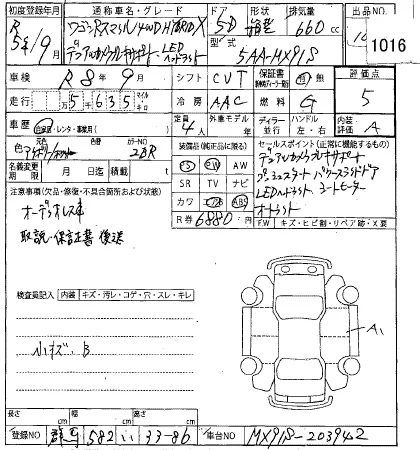 初度登録年月 通称車名・グレード ドア 形状 排気量 出品NO.
R5年/9月 ワゴンRスマイル/4WD HYBRID X 5D 箱型 660cc 1016
デュアルカメラブレーキサポート LEDヘッドライト 型式 5AA-MX91S
車検 R8年9月 シフト CVT 保証書 有 無 評価点
走行 5,635 マイル キロ 冷房 AAC 燃料 G 5
車歴 自家用・レンタ・事業用( ) 定員 4人 外装モデル ディーラー 並行 ハンドル 左・右 内装評価 A
色 カラーNO 2BR
名義変更期限 月 日 積載 t
装備品(純正品に限る)
PS PW AW
SR TV ナビ
カワ エアB ABS
R券 6880円
セールスポイント(正常に機能するもの)
デュアルカメラブレーキサポート
プッシュスタート パワースライドドア
LEDヘッドライト シートヒーター
オートライト
F.W キズ・ヒビ割・リペア跡・X要
注意事項(欠品・修復・不具合箇所および状態)
オーディオレス車
取説・保証書 後送
検査員記入 内装 キズ・汚レ・コゲ・穴・スレ・キレ
小キズ B
A1
長さ cm 幅 cm 高さ cm
登録NO 群馬 582 い 33-86 車台NO MX91S-203942